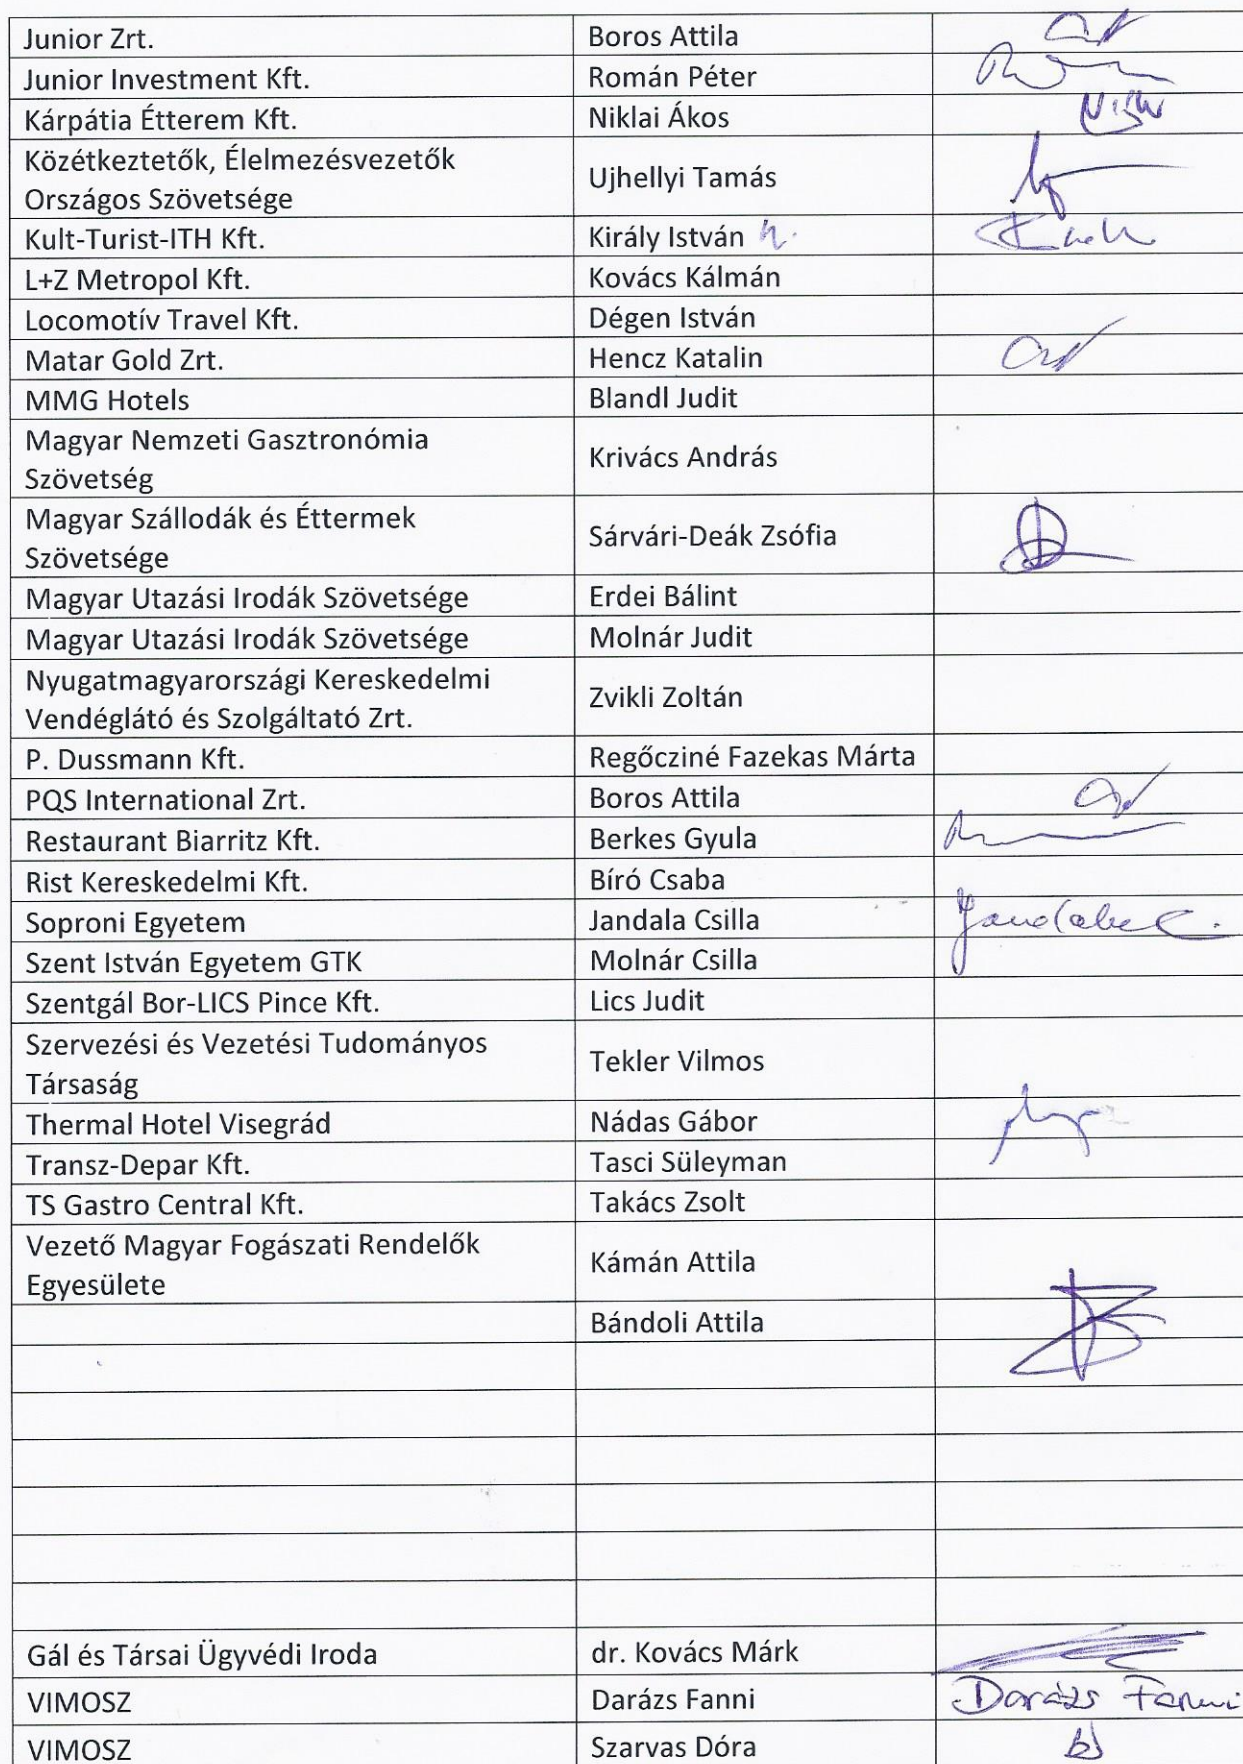 Junior Zrt. Boros Attila
Junior Investment Kft. Román Péter
Kárpátia Étterem Kft. Niklai Ákos
Közétkeztetők, Élelmezésvezetők
Országos Szövetsége
Ujhellyi Tamás
Kult-Turist-ITH Kft. Király István
L+Z Metropol Kft. Kovács Kálmán
Locomotív Travel Kft. Dégen István
Matar Gold Zrt. Hencz Katalin
MMG Hotels Blandl Judit
Magyar Nemzeti Gasztronómia
Szövetség
Krivács András
Magyar Szállodák és Éttermek
Szövetsége
Sárvári-Deák Zsófia
Magyar Utazási Irodák Szövetsége Erdei Bálint
Magyar Utazási Irodák Szövetsége Molnár Judit
Nyugatmagyarországi Kereskedelmi
Vendéglátó és Szolgáltató Zrt.
Zvikli Zoltán
P. Dussmann Kft. Regőcziné Fazekas Márta
PQS International Zrt. Boros Attila
Restaurant Biarritz Kft. Berkes Gyula
Rist Kereskedelmi Kft. Bíró Csaba
Soproni Egyetem Jandala Csilla
Szent István Egyetem GTK Molnár Csilla
Szentgál Bor-LICS Pince Kft. Lics Judit
Szervezési és Vezetési Tudományos
Társaság
Tekler Vilmos
Thermal Hotel Visegrád Nádas Gábor
Transz-Depar Kft. Tasci Süleyman
TS Gastro Central Kft. Takács Zsolt
Vezető Magyar Fogászati Rendelők
Egyesülete
Kámán Attila
Bándoli Attila
Gál és Társai Ügyvédi Iroda dr. Kovács Márk
VIMOSZ Darázs Fanni Darázs Fanni
VIMOSZ Szarvas Dóra